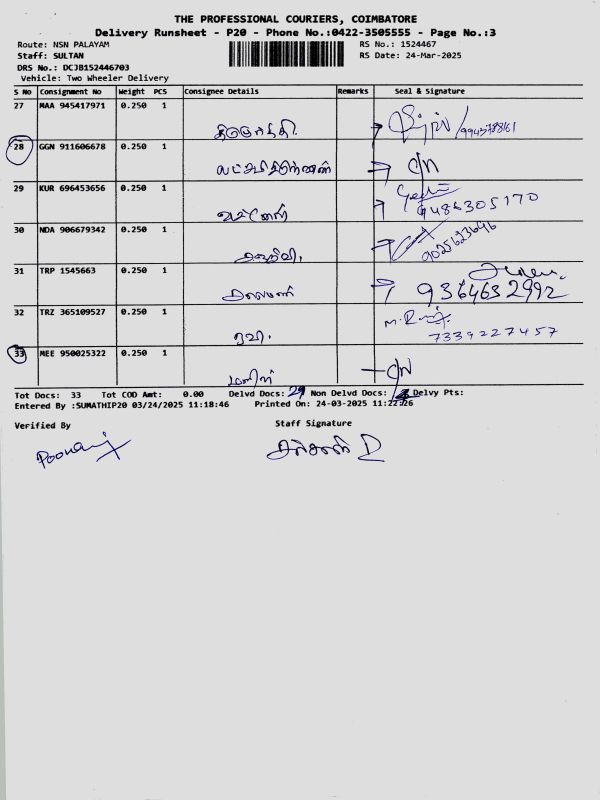 THE PROFESSIONAL COURIERS, COIMBATORE
Delivery Runsheet - P20 - Phone No.:0422-3505555 - Page No.:3
Route: NSN PALAYAM RS No.: 1524467
Staff: SULTAN RS Date: 24-Mar-2025
DRS No.: DCJB152446703
Vehicle: Two Wheeler Delivery
S No Consignment No Weight PCS Consignee Details Remarks Seal & Signature
27 MAA 945417971 0.250 1
28 GGN 911606678 0.250 1
29 KUR 696453656 0.250 1
9486305170
30 NDA 906679342 0.250 1
9025623696
31 TRP 1545663 0.250 1
9364632992
32 TRZ 365109527 0.250 1
ரவி. 7339227457
33 MEE 950025322 0.250 1
Tot Docs: 33 Tot COD Amt: 0.00 Delvd Docs: Non Delvd Docs: Delvy Pts:
Entered By :SUMATHIP20 03/24/2025 11:18:46 Printed On: 24-03-2025 11:22:26
Verified By Staff Signature